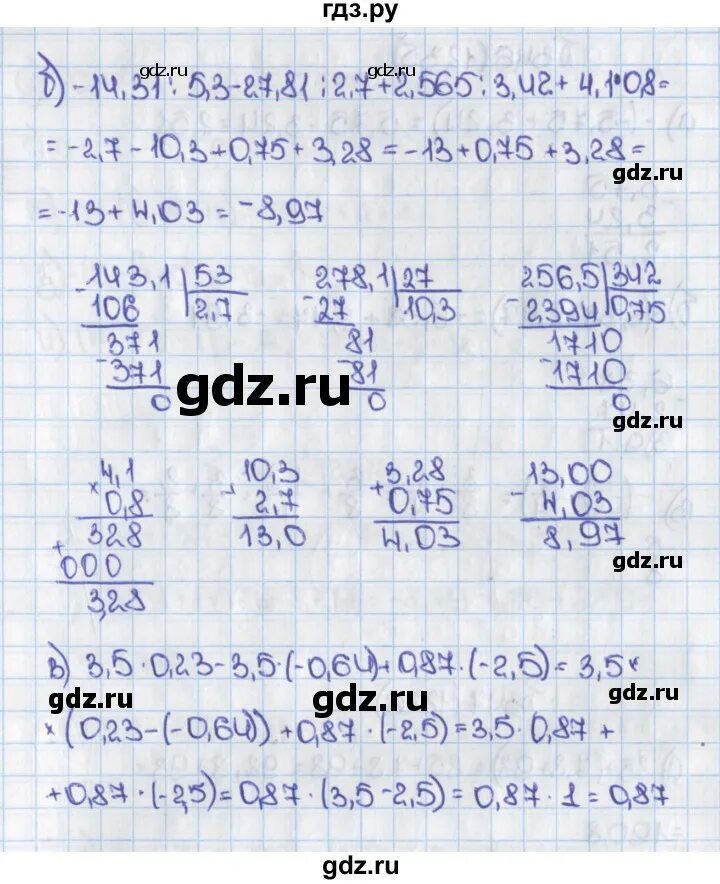 гдз.ру
б) -14,31 : 5,3 - 27,81 : 2,7 + 2,565 : 3,42 + 4,1 · 0,8 =
gdz.ru gdz.ru
= -2,7 - 10,3 + 0,75 + 3,28 = -13 + 0,75 + 3,28 =
gdz.ru
= -13 + 4,03 = -8,97
143,1 | 53 278,1 | 27 256,5 | 342
- 106 2,7 - 27 10,3 - 2394 0,75
371 81 1710
- 371 - 81 - 1710
0 0 0
gdz.ru
gdz.ru
4,1 10,3 3,28 13,00
× 0,8 + 2,7 + 0,75 - 4,03
328 13,0 4,03 8,97
+ 000
gdz.ru
3,28
в) 3,5 · 0,23 - 3,5 · (-0,64) + 0,87 · (-2,5) = 3,5 ×
gdz.ru gdz.ru gdz.ru
× (0,23 - (-0,64)) + 0,87 · (-2,5) = 3,5 · 0,87 +
+ 0,87 · (-2,5) = 0,87 · (3,5 - 2,5) = 0,87 · 1 = 0,87
gdz.ru